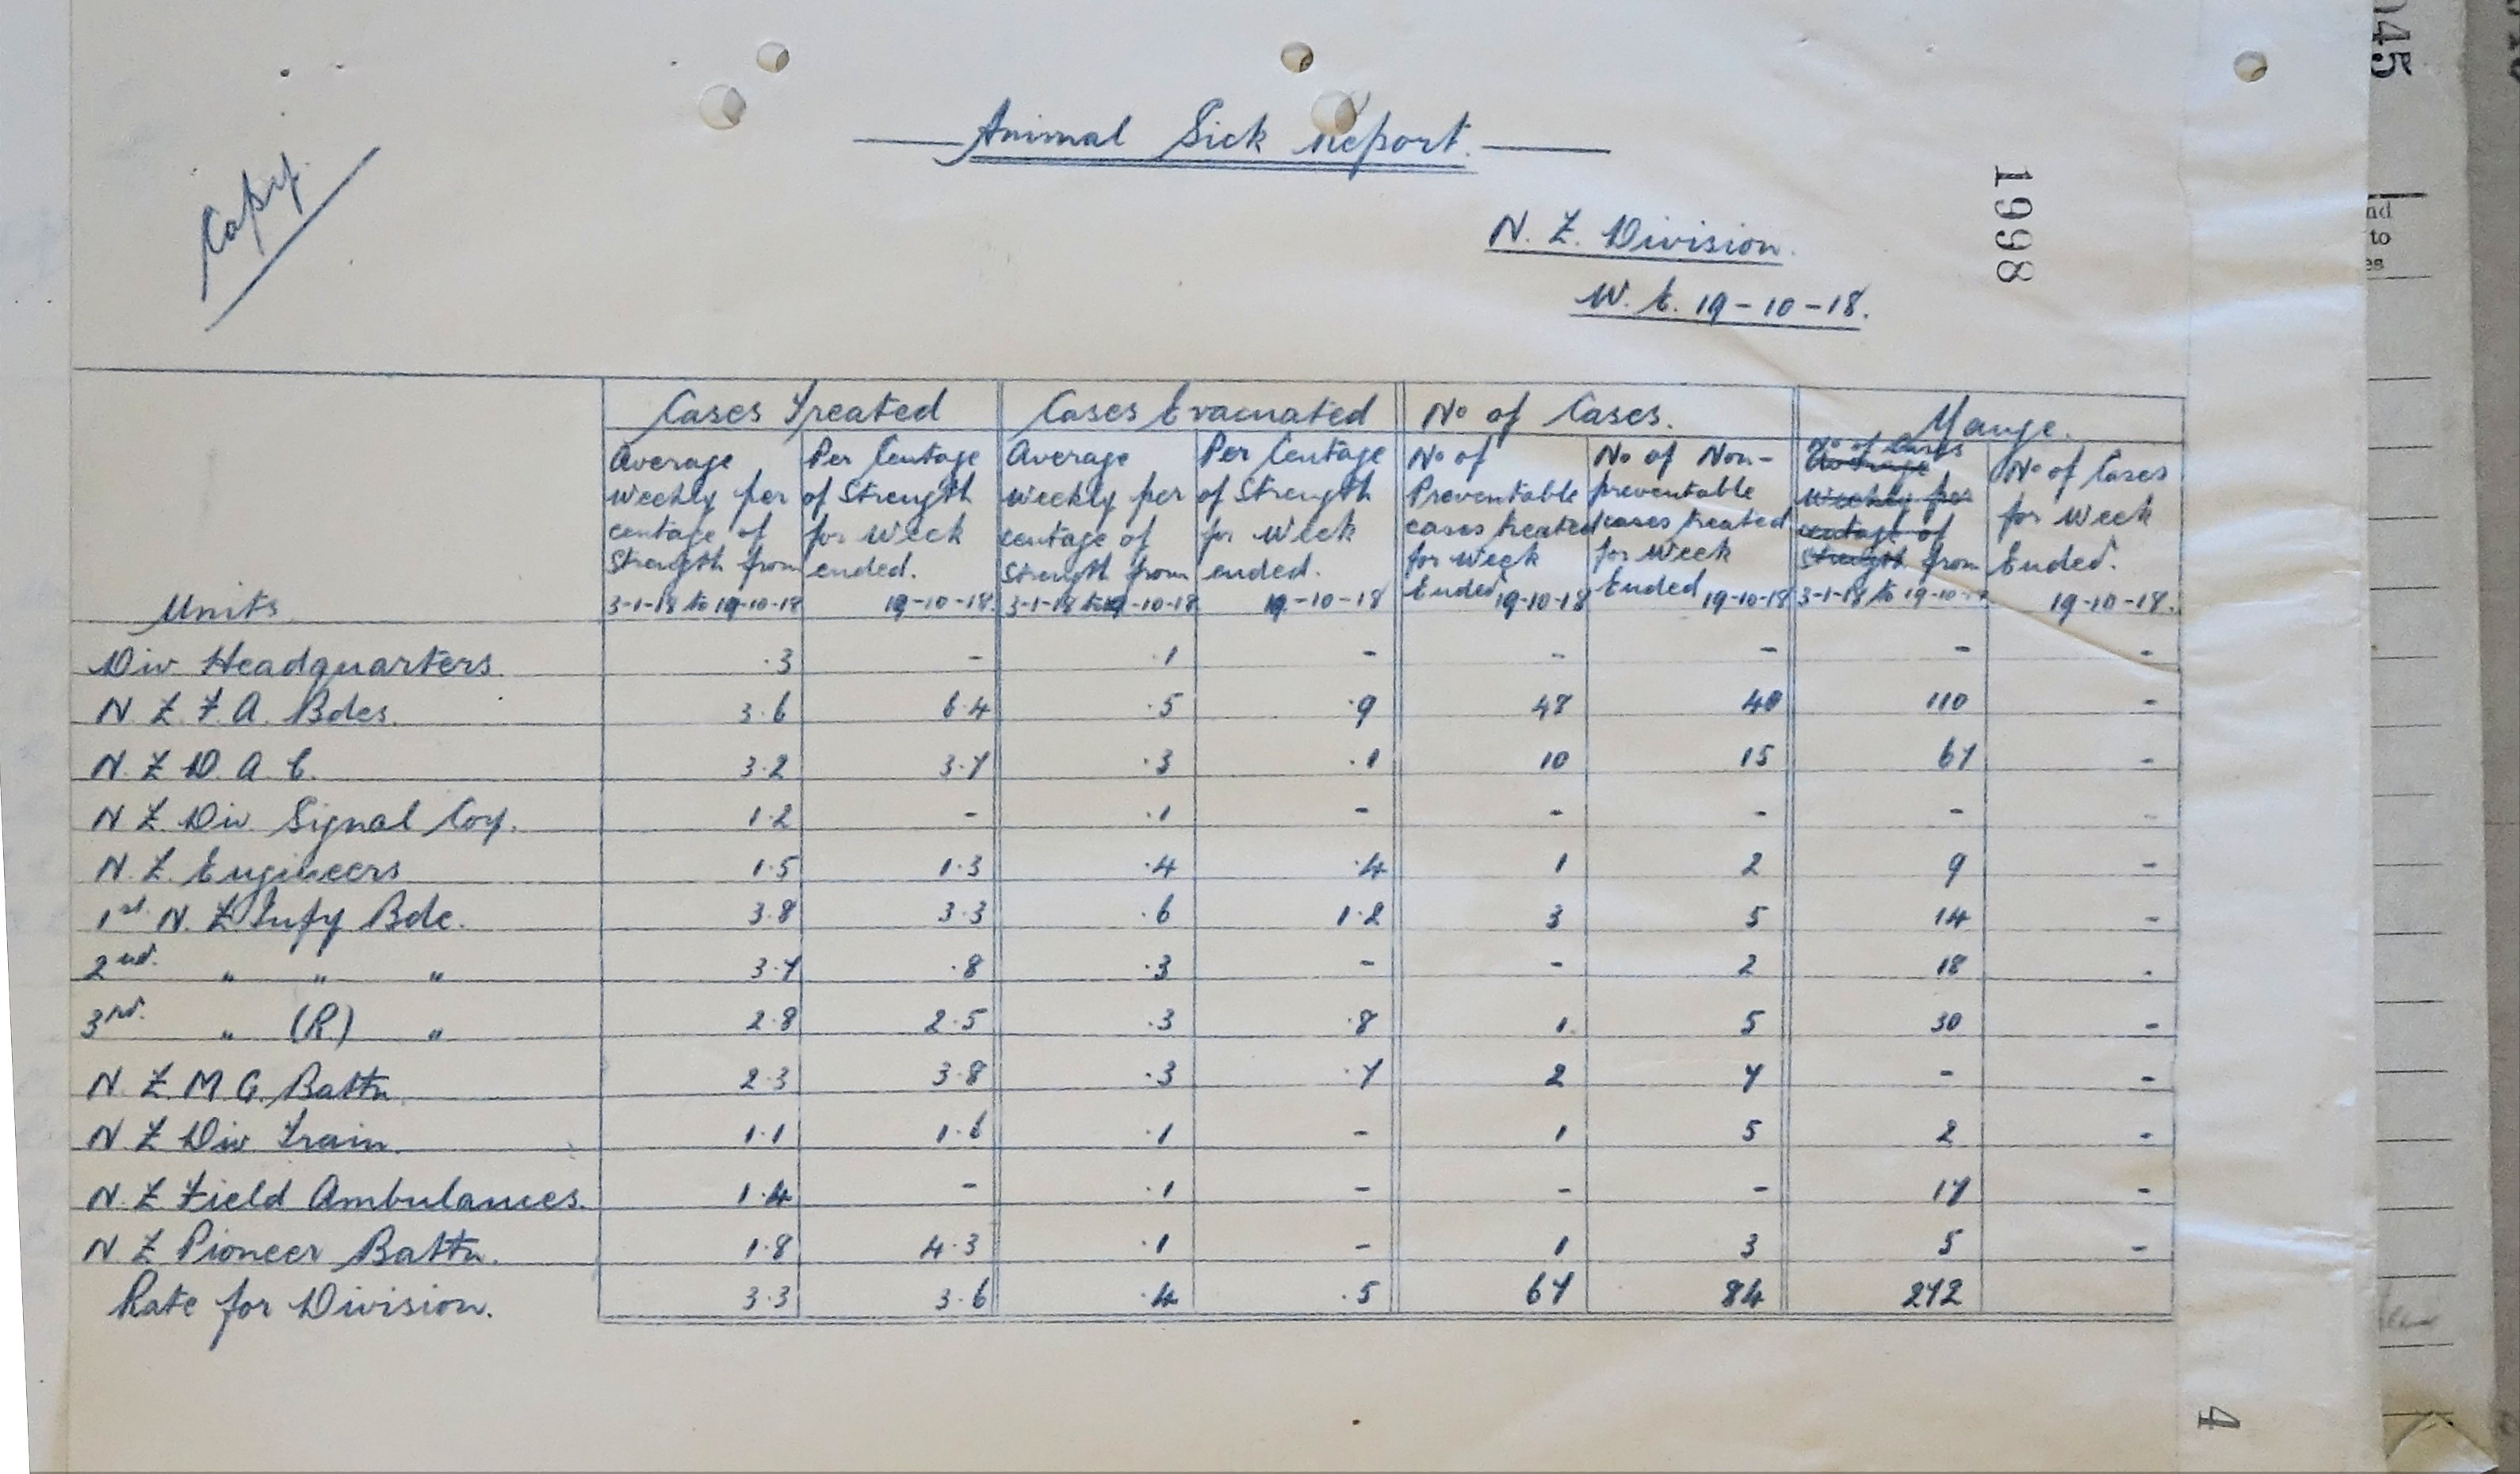 Copy.
Animal Sick Report.
N. Z. Division.
W. E. 19-10-18.
1998
Cases Treated | Cases Evacuated | No of Cases. | Mange.
Units | Average Weekly per centage of Strength from 3-1-18 to 19-10-18 | Per Centage of Strength for Week ended. 19-10-18. | Average Weekly per centage of Strength from 3-1-18 to 19-10-18 | Per Centage of Strength for Week ended. 19-10-18 | No of Preventable cases treated for Week Ended 19-10-18 | No of Non-preventable cases treated for Week Ended 19-10-18 | No of Cases Average Weekly per centage of Strength from 3-1-18 to 19-10- | No of Cases for Week Ended. 19-10-18.
Div Headquarters. | .3 | - | .1 | - | - | - | - | -
N Z F. A. Bdes. | 3.6 | 6.4 | .5 | .9 | 48 | 40 | 110 | -
N. Z D. A C. | 3.2 | 3.7 | .3 | .1 | 10 | 15 | 67 | -
N Z. Div. Signal Coy. | 1.2 | - | .1 | - | - | - | - | -
N. Z. Engineers | 1.5 | 1.3 | .4 | .4 | 1 | 2 | 9 | -
1st N. Z Infy Bde. | 3.8 | 3.3 | .6 | 1.2 | 3 | 5 | 14 | -
2nd. " " " | 3.7 | .8 | .3 | - | - | 2 | 18 | -
3rd. " (R.) " | 2.8 | 2.5 | .3 | .8 | 1 | 5 | 30 | -
N. Z. M G. Battn. | 2.3 | 3.8 | .3 | .7 | 2 | 7 | - | -
N Z Div Train. | 1.1 | 1.6 | .1 | - | 1 | 5 | 2 | -
N. Z Field Ambulances. | 1.4 | - | .1 | - | - | - | 17 | -
N Z Pioneer Battn. | 1.8 | 4.3 | .1 | - | 1 | 3 | 5 | -
Rate for Division. | 3.3 | 3.6 | .4 | .5 | 67 | 84 | 272
4
045
nd
to
es